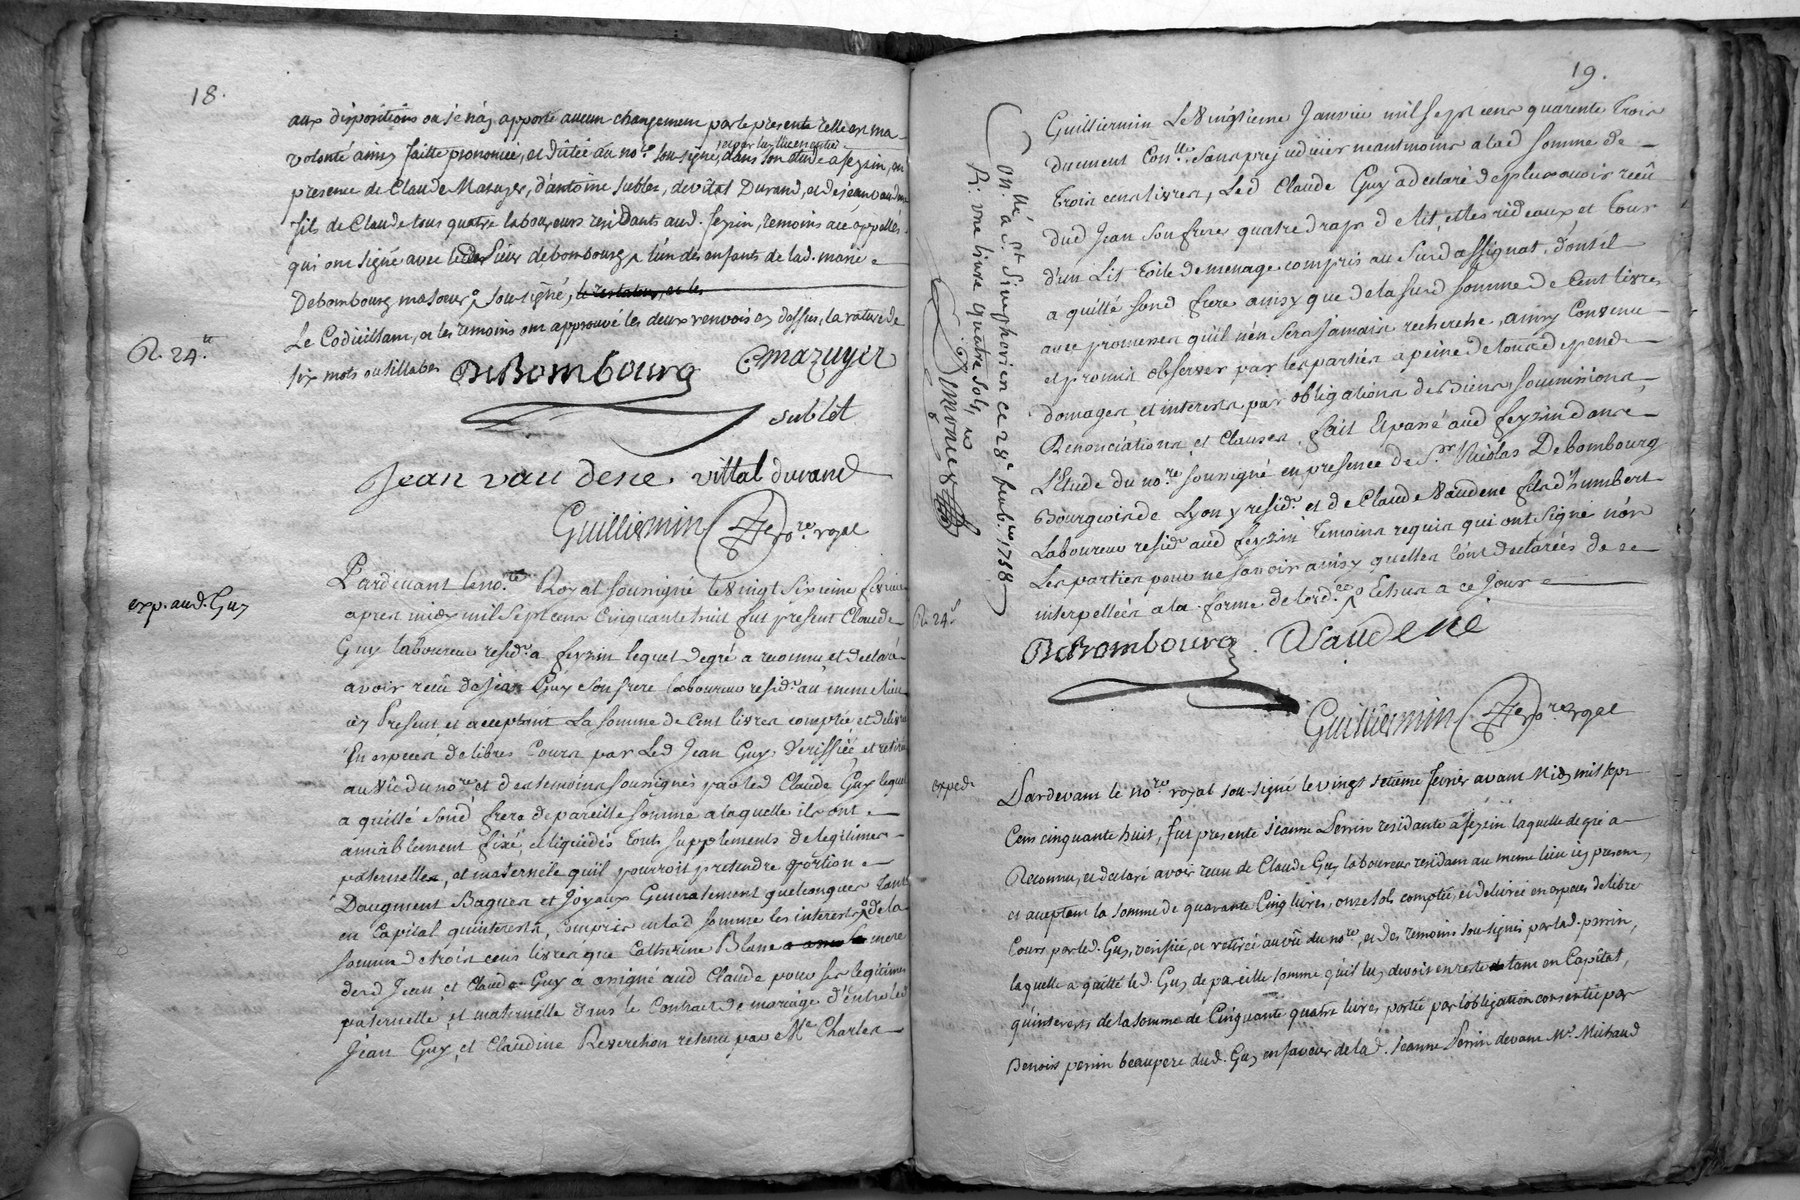 18.
aux dispositions ou je n'ay apporté aucun changement par le presente telle est ma
volonté ainsy faitte prononcée, et dictée au no.re sous-signé, dans son etude a feyzin, en
presence de Claude Mazuyer, d'antoine Sublet, de vital Durand, et de jean vaudene
fils de Claude tous quatre laboureurs residants aud. feyzin, temoins
qui ont signé avec led. Sieur debombourg, l'un des enfants de lad. marie
Debombourg sous-signé,
Le Codicillant, et les temoins ont approuvé les deux renvois cy dessus, la rature de
six mots ou sillabes
R. 24.s
DeBombourg
C mazuyer
sublet
Jean vaudene vittal durand
Guilliermin no.re royal
exp. aud. Guy
Pardevant le no.re Royal soussigné le vingt sixieme fevrier
apres midy mil sept cens Cinquante huit fut present Claude
Guy laboureur resid.t a feyzin lequel de gré a reconnu et declaré
avoir receu de jean Guy son frere laboureur resid.t au meme lieu
icy Present, et acceptant La somme de Cent livres comptée et delivrée
En especes de libres Cours par Led Jean Guy, verifiée et retirée
au vû du no.re et des temoins soussignés par led Claude Guy lequel
a quitté sond frere de pareille somme a laquelle ils ont
amiablement fixé, et liquidés touts supplements de legitimes
paternelle, et maternelle qu'il pourroit pretendre portion
D'augment Bagues et Joyaux Generalement quelconques tant
en Capital qu'interests, compris en lad somme les interests de la
somme de trois cens livres que Catherine Blanc mere
desd Jean, et Claude Guy a assigné aud Claude pour ses legitimes
paternelle, et maternelle dans le Contract de mariage d'entre led
Jean Guy, et Claudine Reverchon retenu par M.e Charles
19.
Con.llé a S.t Simphorien ce 28.e feub.ier 1758
R. une livre quatre sols,
Simonet
Guilliermin Le vingtieme Janvier mil sept cens quarente Trois
duement Con.llé, sans prejudicier neantmoins a lad somme de
Trois cens livres, Led Claude Guy a declaré de plus avoir receû
dud Jean son frere quatre draps de lit, et les rideaux et tour
d'un Lit toile de menage compris au susd assignat, dont il
a quitté sond frere ainsy que de la susd somme de Cent livres
avec promesses qu'il n'en sera jamais recherché, ainsy Convenu
et promis observer par les parties a peine de tous depends
domages, et interests par obligations de Biens, soumissions,
Renonciations, et Clauses, fait et passé aud feyzin dans
L'Etude du no.re soussigné en presence de S.r Nicolas DeBombourg
Bourgeois de Lyon y resid.t et de Claude vaudene fils d'humbert
Laboureur resid.t aud feyzin Temoins requis qui ont signé non
Les parties pour ne scavoir ainsy qu'elles l'ont declarées de ce
interpellées a la forme de lesd. a ce jour
R. 24.s
DeBombourg
C Vaudene
Guilliermin no.re royal
exped.
Pardevant le no.re royal sous-signé le vingt setieme fevrier avant Midy mil sept
Cens cinquante huit, fut presente Jeanne Perrin residante a feyzin laquelle de gré a
Reconnu, et declaré avoir receu de Claude Guy laboureur residant au meme lieu icy present,
et acceptant la somme de quarante Cinq livres, onze sols comptée, et delivrée en especes de libre
Cours par led. Guy, verifiée, et retirée au vû du no.re, et des temoins sous-signés par lad. perrin,
laquelle a quitté led. Guy de pareille somme qu'il luy devoit en reste tant en Capital,
qu'interests de la somme de Cinquante quatre livres portée par l'obligation consentie par
Benoit perrin beaupere dud. Guy en faveur de lad. Jeanne Perrin devant M.e Michaud